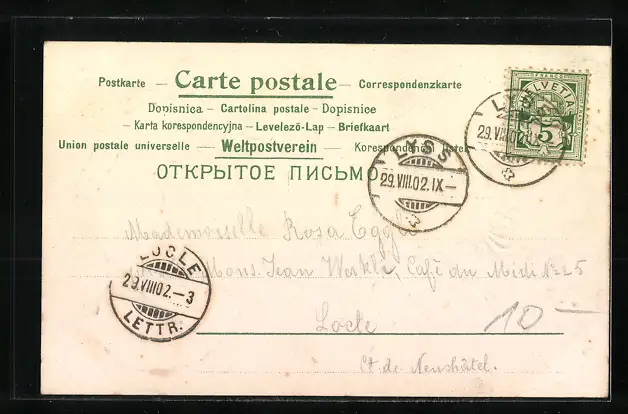 Postkarte — Carte postale — Correspondenzkarte
Dopisnica – Cartolina postale – Dopisnice
– Karta korespondencyjna – Levelező-Lap – Briefkaart
Union postale universelle – Weltpostverein – Korespondenční lístek
ОТКРЫТОЕ ПИСЬМО
HELVETIA
5
LYSS
29.VIII.02
LYSS
29.VIII.02.IX–
LOCLE
29.VIII02.–3
LETTR.
Mademoiselle Rosa
Mons. Jean Café du Midi No 25
Locle
10 —
Ct de Neuchâtel.